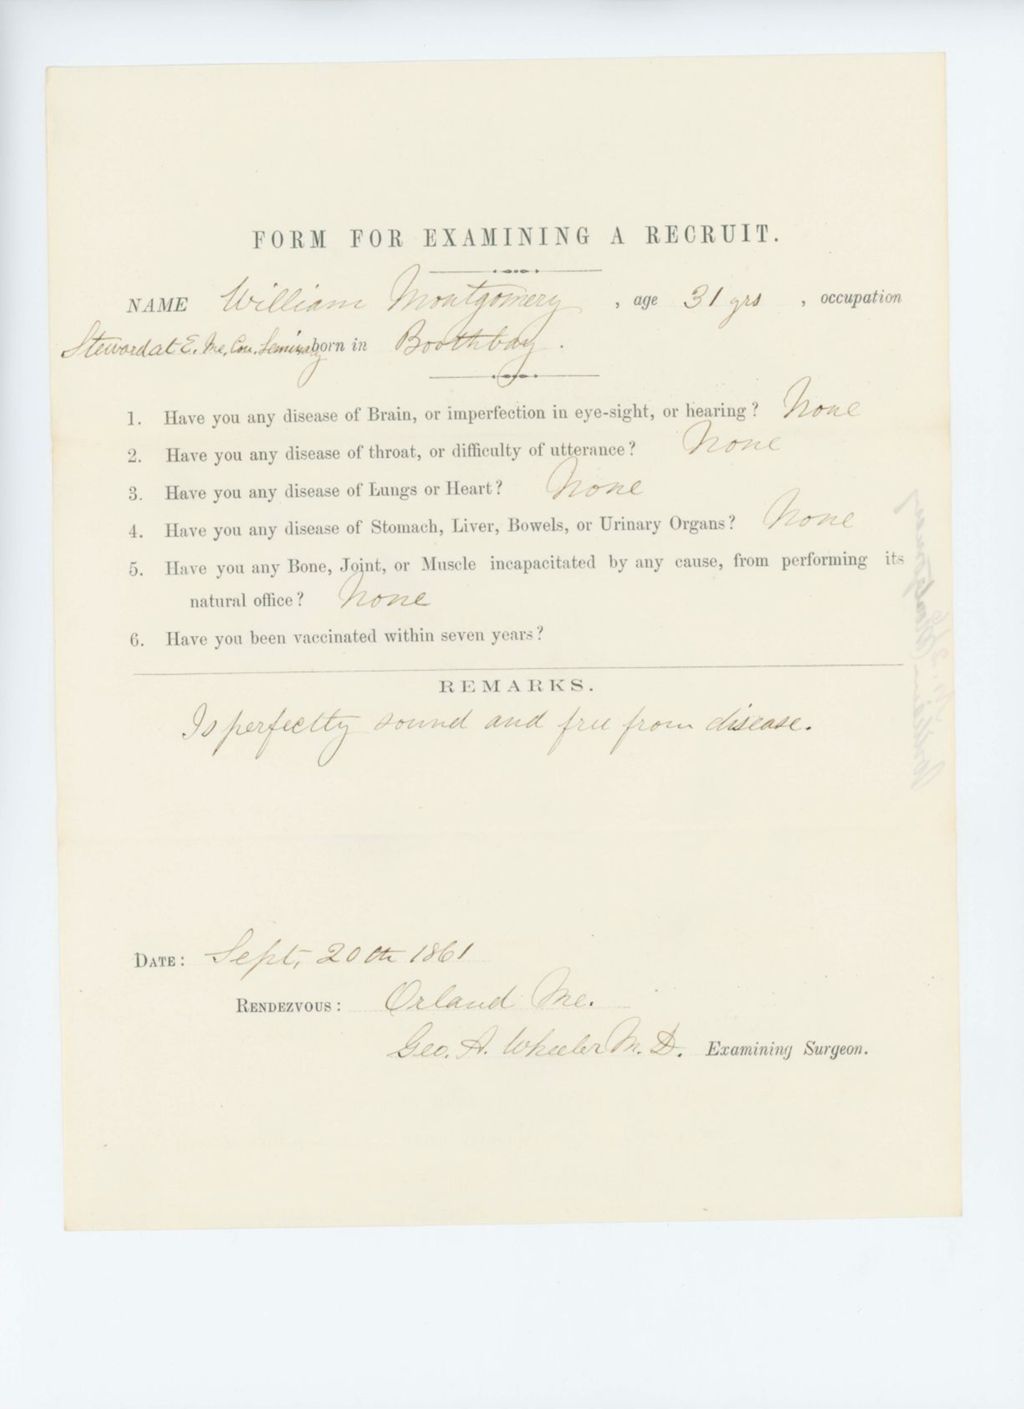 FORM FOR EXAMINING A RECRUIT.
NAME William Montgomery , age 31 yrs , occupation
Steward at E. Me. Con. Seminary born in Boothbay .
1. Have you any disease of Brain, or imperfection in eye-sight, or hearing? None
2. Have you any disease of throat, or difficulty of utterance? None
3. Have you any disease of Lungs or Heart? None
4. Have you any disease of Stomach, Liver, Bowels, or Urinary Organs? None
5. Have you any Bone, Joint, or Muscle incapacitated by any cause, from performing its
natural office? None
6. Have you been vaccinated within seven years?
REMARKS.
Is perfectly sound and free from disease.
DATE: Sept, 20th 1861
RENDEZVOUS: Orland Me.
Geo. A. Wheeler M. D. Examining Surgeon.